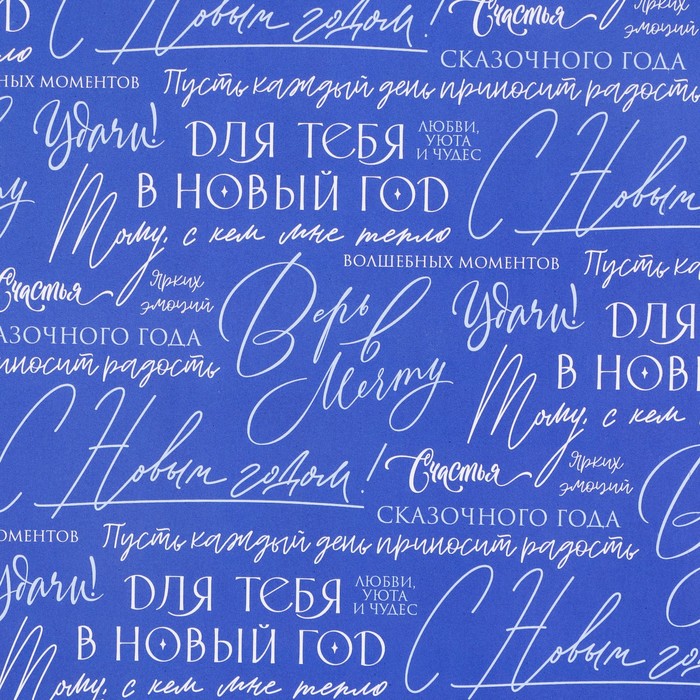 С Новым годом!
Счастья
Ярких
эмоций
СКАЗОЧНОГО ГОДА
ных моментов
Пусть каждый день приносит радость
Удачи!
ДЛЯ ТЕБЯ
ЛЮБВИ,
УЮТА
И ЧУДЕС
В НОВЫЙ ГОД
С Новым
Тому, с кем мне тепло
ВОЛШЕБНЫХ МОМЕНТОВ
Пусть ка
Счастья
Ярких
эмоций
Верь
в
Мечту
Удачи!
ДЛЯ
АЗОЧНОГО ГОДА
иносит радость
В НОВ
Тому, с кем
С Новым годом!
Счастья
Ярких
эмоций
СКАЗОЧНОГО ГОДА
ОМЕНТОВ
Пусть каждый день приносит радость
Удачи!
ДЛЯ ТЕБЯ
ЛЮБВИ,
УЮТА
И ЧУДЕС
В НОВЫЙ ГОД
С Новым го
Тому, с кем мне тепло